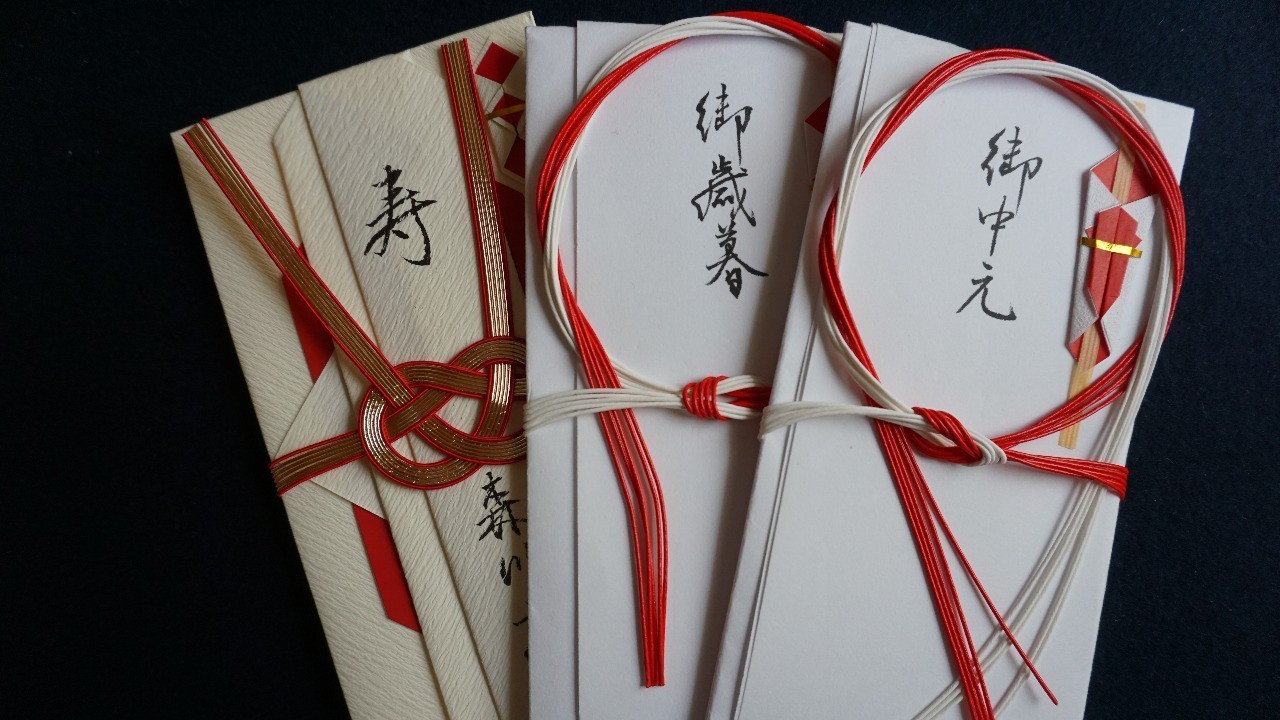 寿
森川
御歳暮
御中元